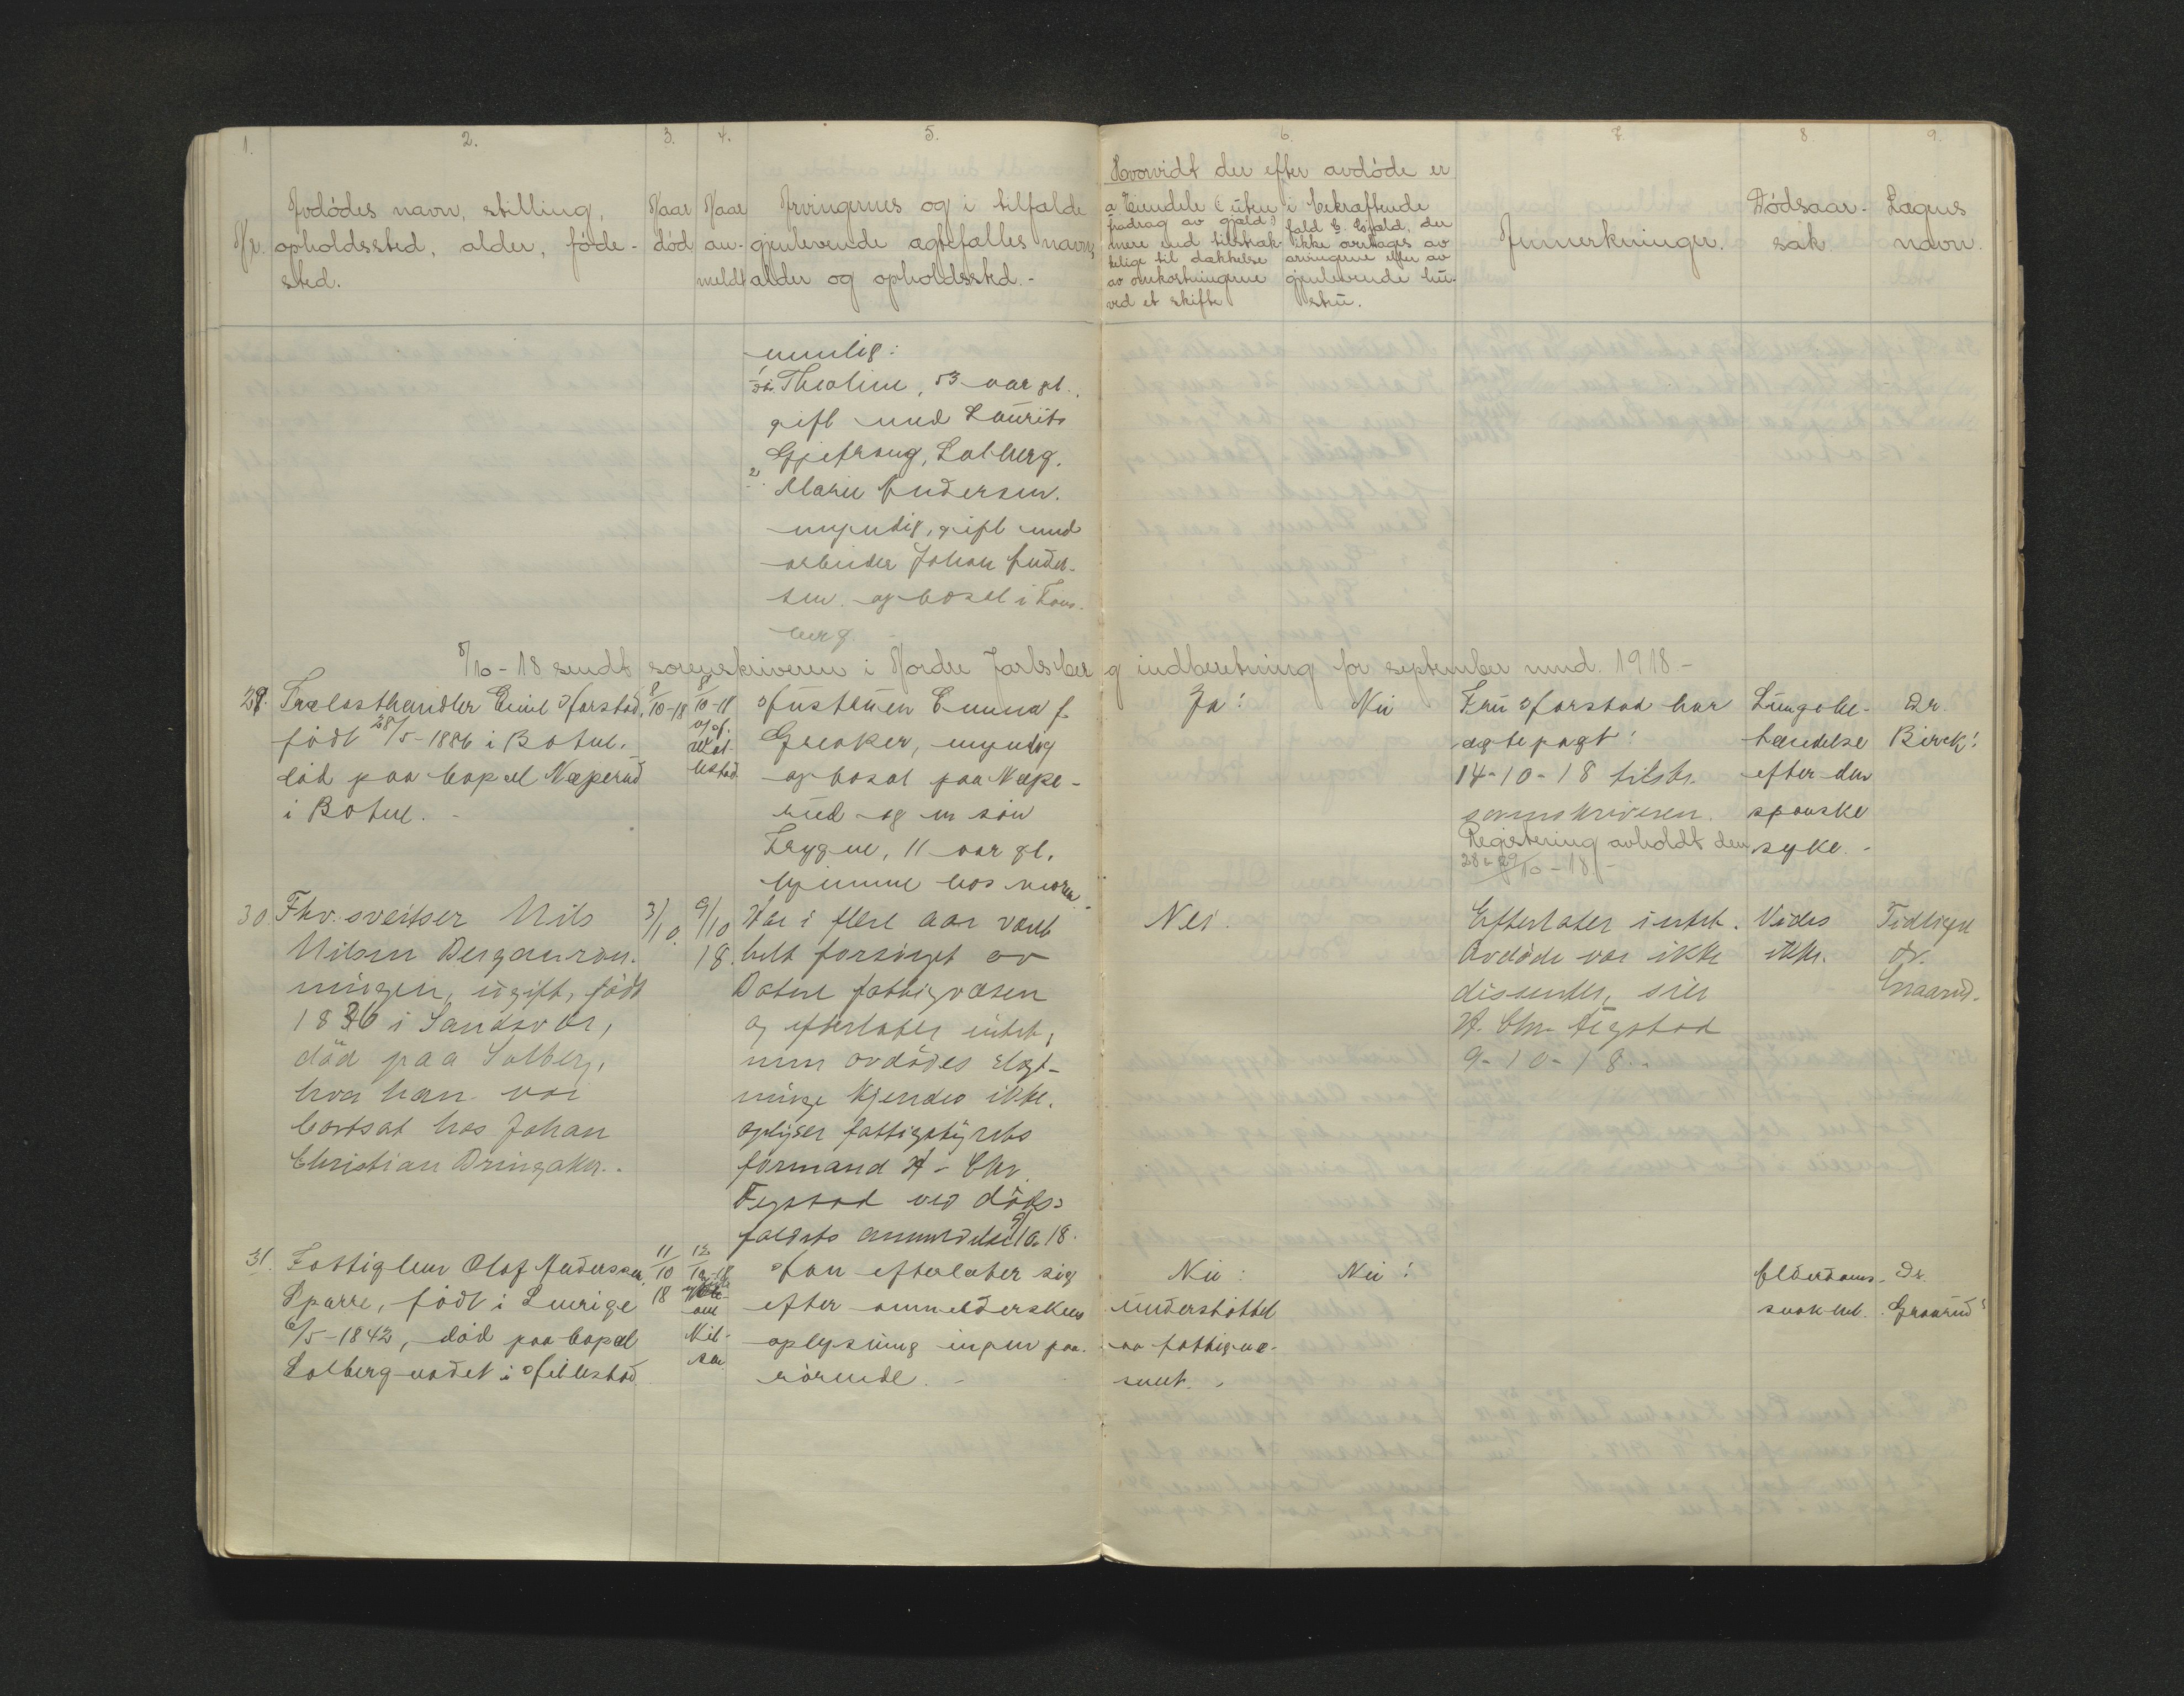 1. 2. 3. 4. 5. 6. 7. 8. 9.
Hvorvidt der efter avdøde er
Nr.
Avdødes navn, stilling,
opholdssted, alder, føde-
sted.
Naar
død
Naar
an-
meldt
Arvingernes og i tilfælde
gjenlevende ægtefælles navn,
alder og opholdssted.-
a Eiendele (uten
fradrag av gjæld)
mere end tilstræk-
kelige til dækkelse
av omkostningerne
ved et skifte
i bekræftende
fald b. Gjæld, der
ikke overtages av
arvingerne eller av
gjenlevende hu-
stru.
Anmerkninger.
Dødsaar-
sak.
Lægens
navn.
nemlig:
1. Theoline, 53 aar gl.,
gift med Laurits
Solberg.
2. Marie Andersen.
myndig, gift med
arbeider Johan Ander-
sen og bosat i Tøns-
berg.
8/10-18 sendt sorenskriveren i Nordre Jarlsberg indberetning for september mnd. 1918.-
29. Trælasthandler Emil Horstad,
født 28/5-1886 i Botne.
død paa bopæl Næperud
i Botne.-
8/10-18
8/10-18
av
Hustruen Emma f.
Greaker, myndig
og bosat paa Næpe-
rud og en søn
Trygve, 11 aar gl.
hjemme hos moren.
Ja!
Nei
Fru Horstad har
ægtepagt!
14-10-18 tilskr.
sorenskriveren.
Registrering avholdt den
28 & 29/10-18.-
Lungebe-
tændelse
efter den
spanske
syke.-
Dr.
Birck!
30. Fhv. sveitser Nils
Nilsen
ugift, født
1836 i Sandsvær,
død paa Solberg,
hvor han var
bortsat hos Johan
Christian Bringaker.-
3/10.
9/10
18.
Har i flere aar vært
helt forsørget av
Botne fattigvæsen
og efterlater intet,
men avdødes slægt-
ninge kjendes ikke.
oplyser fattigstyrets
formand H. Chr.
Fegstad ved døds-
faldets anmeldelse 9/10.18.
Nei.
Efterlater intet.
Avdøde var ikke
dissenter, sier
H. Chr. Fegstad
9-10-18.-
Vides
ikke.
Tidligere
dr.
Graarud.
31. Fattiglem Olaf Andersson
Sparre, født i Sverige
6/5-1842, død paa bopæl
Solberg-vadet i Hillestad
11/10
18
12/10-18
Nil-
sen.
Han efterlater sig
efter anmelderskens
oplysning ingen paa-
rørende.-
Nei:
understøttet
av fattigvæ-
senet.
Nei!
Alderdoms-
svakhet.
Dr.
Graarud